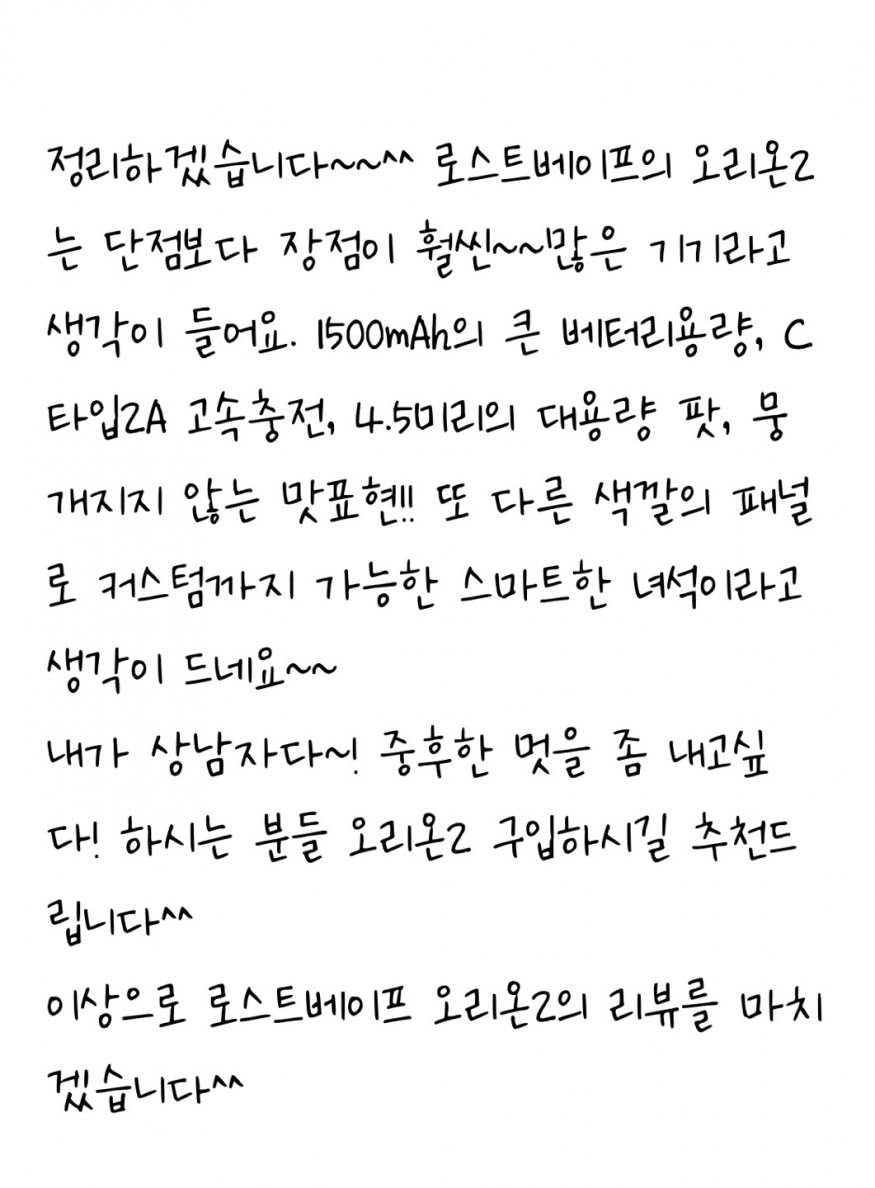 정리하겠습니다~~^^ 로스트베이프의 오리온2
는 단점보다 장점이 훨씬~~!많은 기기라고
생각이 들어요. 1500mAh의 큰 베터리용량, C
타입2A 고속충전, 4.5미리의 대용량 팟, 뭉
개지지 않는 맛표현!! 또 다른 색깔의 패널
로 커스텀까지 가능한 스마트한 녀석이라고
생각이 드네요~~
내가 상남자다~! 중후한 멋을 좀 내고싶
다! 하시는 분들 오리온2 구입하시길 추천드
립니다^^
이상으로 로스트베이프 오리온2의 리뷰를 마치
겠습니다^^